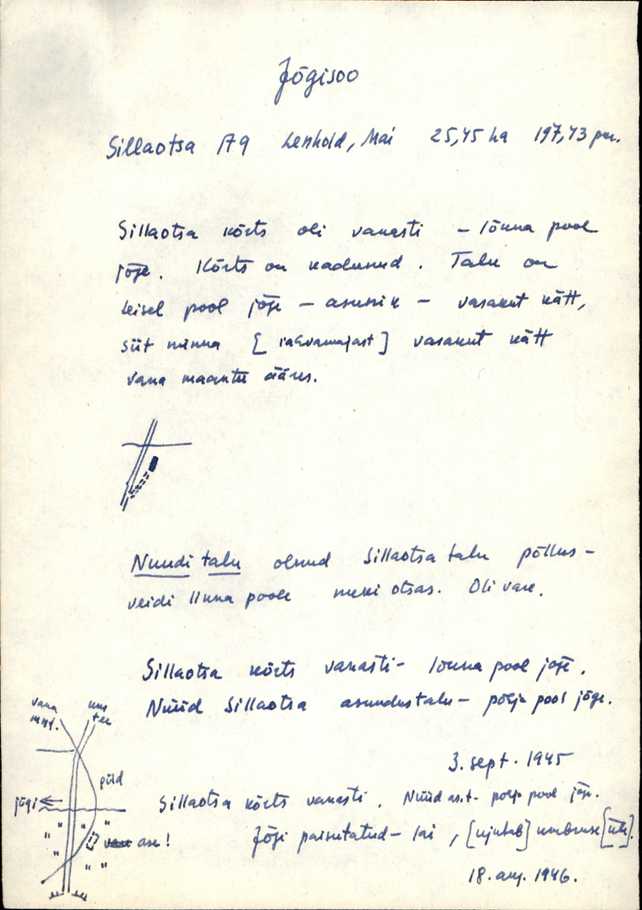 Jõgisoo
Sillaotsa A9 Lenhold, Mai 25,45 ha 197,43 per.
Sillaotsa kõrts oli vanasti – lõuna pool
jõge. Kõrts on kadunud. Talu on
teisel pool jõge – asunik – vasakut kätt,
siit minna [rahvamajast] vasakut kätt
vana maantee ääres.
Nuudi talu olnud Sillaotsa talu põllus –
veidi linna poole mäe otsas. Oli vare.
Sillaotsa kõrts vanasti – lõuna pool jõge.
Nüüd Sillaotsa asundustalu – põhja pool jõge.
vana uus
mnt. tee
3. sept. 1945
püld
jõgi
Sillaotsa kõrts vanasti. Nüüd as.t. põhja pool jõge.
ase! Jõgi paisutatud – lai, [ujutab] ümbruse [üle].
18. aug. 1946.